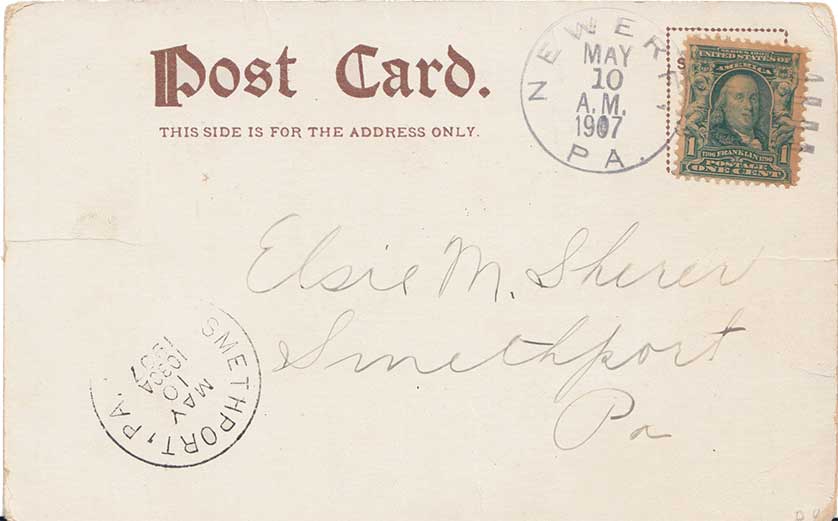 Post Card.
THIS SIDE IS FOR THE ADDRESS ONLY.
NEWERT
MAY
10
A.M.
1907
PA.
UNITED STATES OF
AMERICA
1 1
FRANKLIN
POSTAGE
ONE CENT
Elsie M. Sherer
Smethport
Pa
SMETHPORT, PA.
MAY
10
1907